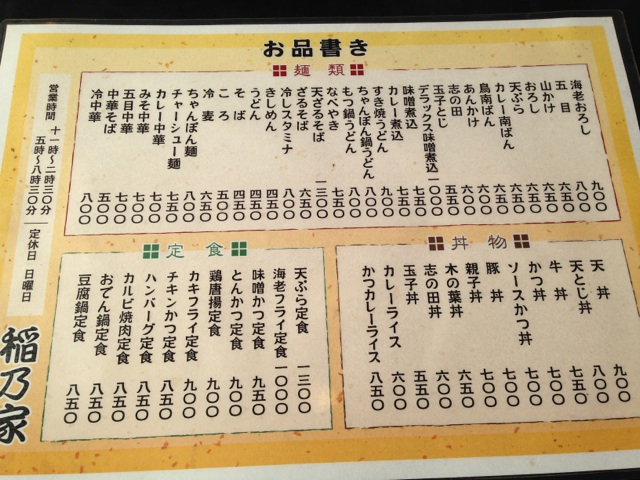 お品書き
麺類
海老おろし 九〇〇
五目 八〇〇
山かけ 六五〇
おろし 六五〇
天ぷら 七五〇
カレー南ばん 六五〇
鳥南ばん 六五〇
あんかけ 六〇〇
志の田 五五〇
玉子とじ 五五〇
デラックス味噌煮込 一〇〇〇
味噌煮込 六五〇
カレー煮込 七五〇
すき焼うどん 九〇〇
ちゃんぽん鍋うどん 八〇〇
もつ鍋うどん 八〇〇
なべやき 七五〇
天ざるそば 一三〇〇
ざるそば 六五〇
冷しスタミナ 八〇〇
きしめん 四五〇
うどん 四五〇
そば 四五〇
ころ 五〇〇
冷麦 六五〇
ちゃんぽん麺 八〇〇
チャーシュー麺 七五〇
カレー中華 七五〇
みそ中華 六五〇
五目中華 七〇〇
中華そば 五〇〇
冷中華 八〇〇
丼物
天丼 九〇〇
天とじ丼 八〇〇
牛丼 七五〇
かつ丼 七〇〇
ソースかつ丼 七〇〇
豚丼 七〇〇
親子丼 六五〇
木の葉丼 六〇〇
志の田丼 五五〇
玉子丼 六〇〇
カレーライス 六〇〇
かつカレーライス 八五〇
定食
天ぷら定食 一三〇〇
海老フライ定食 一〇〇〇
味噌かつ定食 九五〇
とんかつ定食 九〇〇
鶏唐揚定食 九〇〇
カキフライ定食 九〇〇
チキンかつ定食 八五〇
ハンバーグ定食 八五〇
カルビ焼肉定食 八五〇
おでん鍋定食 八五〇
豆腐鍋定食 八五〇
営業時間 十一時〜二時三〇分
五時〜八時三〇分
定休日 日曜日
稲乃家